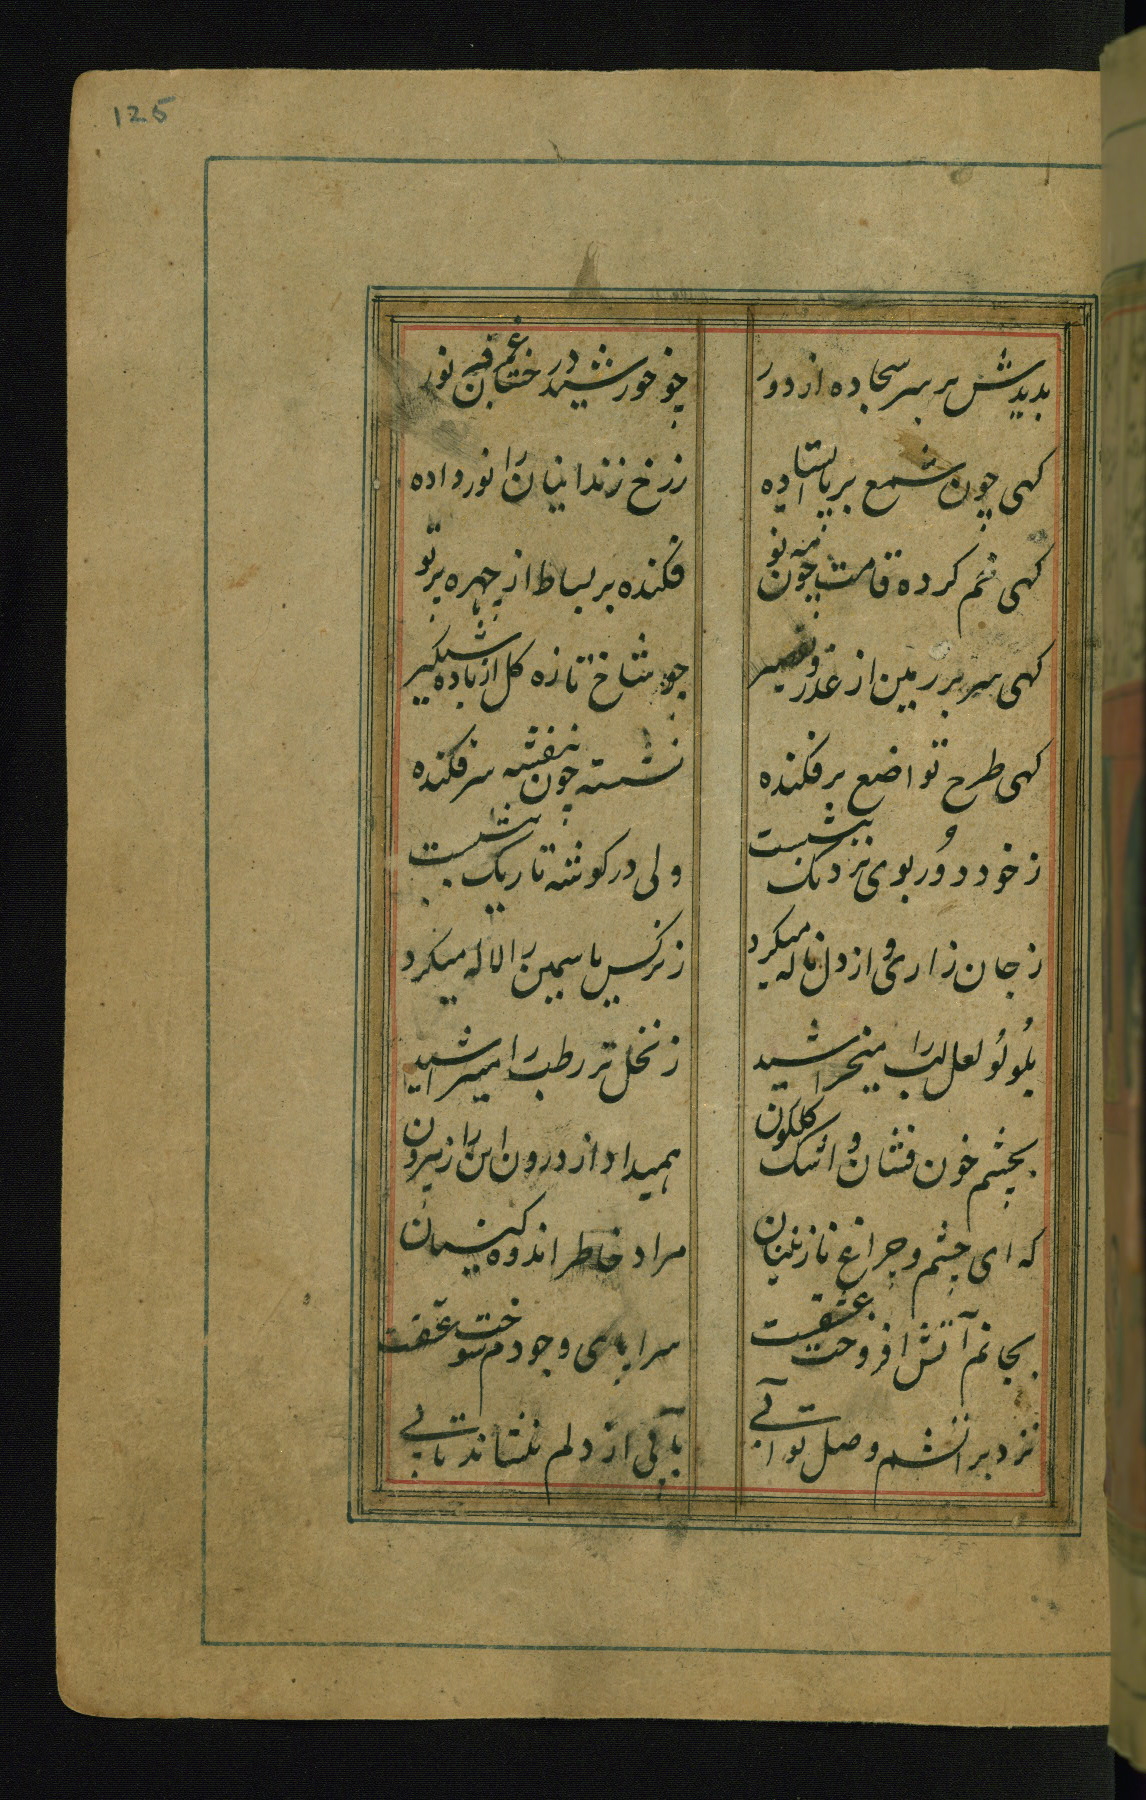 125
بدیدش بر سر سجاده از دور چو خورشید درخشان غم نور
کهی چون شمع بر پا ایستاده ز رخ زندانیان را نور داده
کهی خم کرده قامت چون مه نو فکنده بر بساط از چهره پرتو
کهی سر بر زمین از عذر و تقصیر چو شاخ تازه کل از باده شبکیر
کهی طرح تواضع بر فکنده نشسته چون بنفشه سر فکنده
ز خود دور و بوی نزدیک بنشست ولی در کوشه تاریک بنشست
ز جان زاری و از دل ناله میکرد ز نرکس یاسمین را لاله میکرد
بلولو لعل لب را میخراشید ز نخل تر رطب را میتراشید
بچشم خون فشان و اشک کلکون همیداد از درون این راز بیرون
که ای چشم و چراغ نازنینان مراد خاطر اندوه کینان
بجانم آتش افروخت عشقت سراپای وجودم سوخت عشقت
نزد بر آتشم وصل تو آبی بآبی از دلم ننشاند تابی